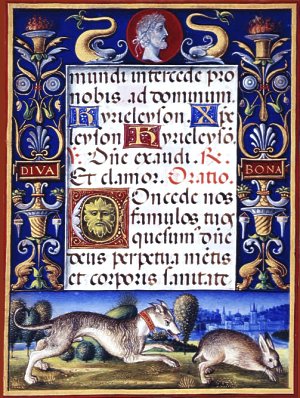 mundi intercede pro
nobis ad dominum.
Kyrieleyson Xpe
leyson Kyrieleysō.
Dñe exaudi. R.
Et clamor. Oratio.
DIVA
BONA
Concede nos
famulos tuos
quesum⁹ dñe
deus perpetua mētis
et corporis sanitate